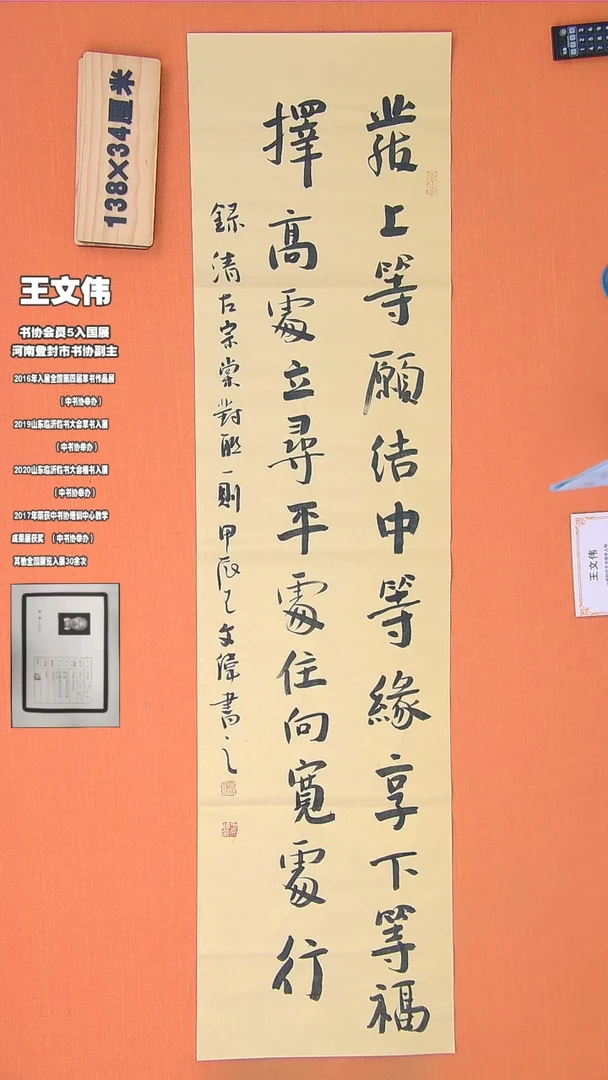 138×34厘米
王文伟
书协会员5入国展
河南登封市书协副主
2016年入展全国第四届草书作品展
（中书协举办）
2019山东临沂临书大会草书入展
（中书协举办）
2020山东临沂临书大会楷书入展
（中书协举办）
2017年荣获中书协培训中心教学
成果展获奖 （中书协举办）
其他全国展览入展30余次
發上等願結中等緣享下等福
擇高處立尋平處住向寬處行
錄清左宗棠對聯一則甲辰文偉書之
王文伟